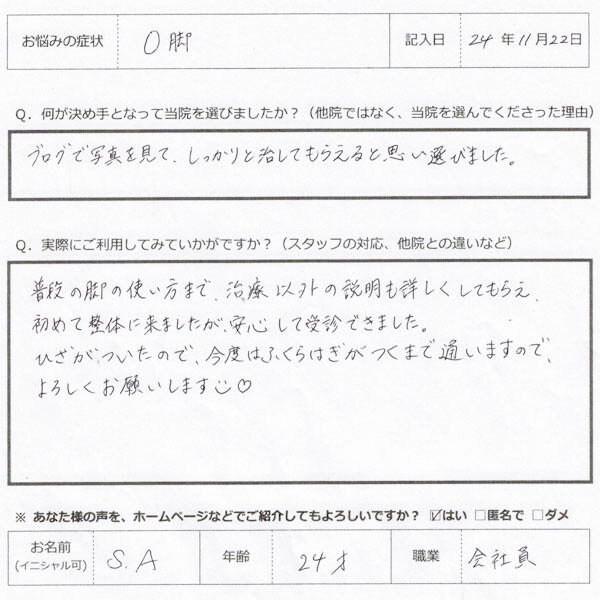 お悩みの症状 O脚 記入日 24年11月22日
Q．何が決め手となって当院を選びましたか？（他院ではなく、当院を選んでくださった理由）
ブログで写真を見て、しっかりと治してもらえると思い選びました。
Q．実際にご利用してみていかがですか？（スタッフの対応、他院との違いなど）
普段の脚の使い方まで、治療以外の説明も詳しくしてもらえ、
初めて整体に来ましたが、安心して受診できました。
ひざがついたので、今度はふくらはぎがつくまで通いますので、
よろしくお願いします☺♡
※ あなた様の声を、ホームページなどでご紹介してもよろしいですか？ ☑はい □匿名で □ダメ
お名前 S.A 年齢 24才 職業 会社員
(イニシャル可)